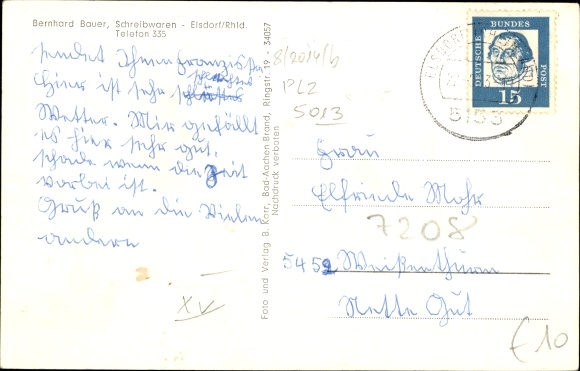 Bernhard Bauer, Schreibwaren - Elsdorf/Rhld.
Telefon 335
sendet Ihnen Franziska
Hier ist sehr schlechtes
Wetter. Mir gefällt
es hier sehr gut,
schade wenn die Zeit
vorbei ist.
Gruß an die Vielen
andern
XV
Foto und Verlag B. Korr, Bad-Aachen-Brand, Ringstr. 19 - 34057
Nachdruck verboten
8/2014/b
PLZ
5013
DEUTSCHE BUNDES POST
15
5153
Frau
Elfriede Mohr
7208
5452 Weißenthurm
Nette Gut
€10